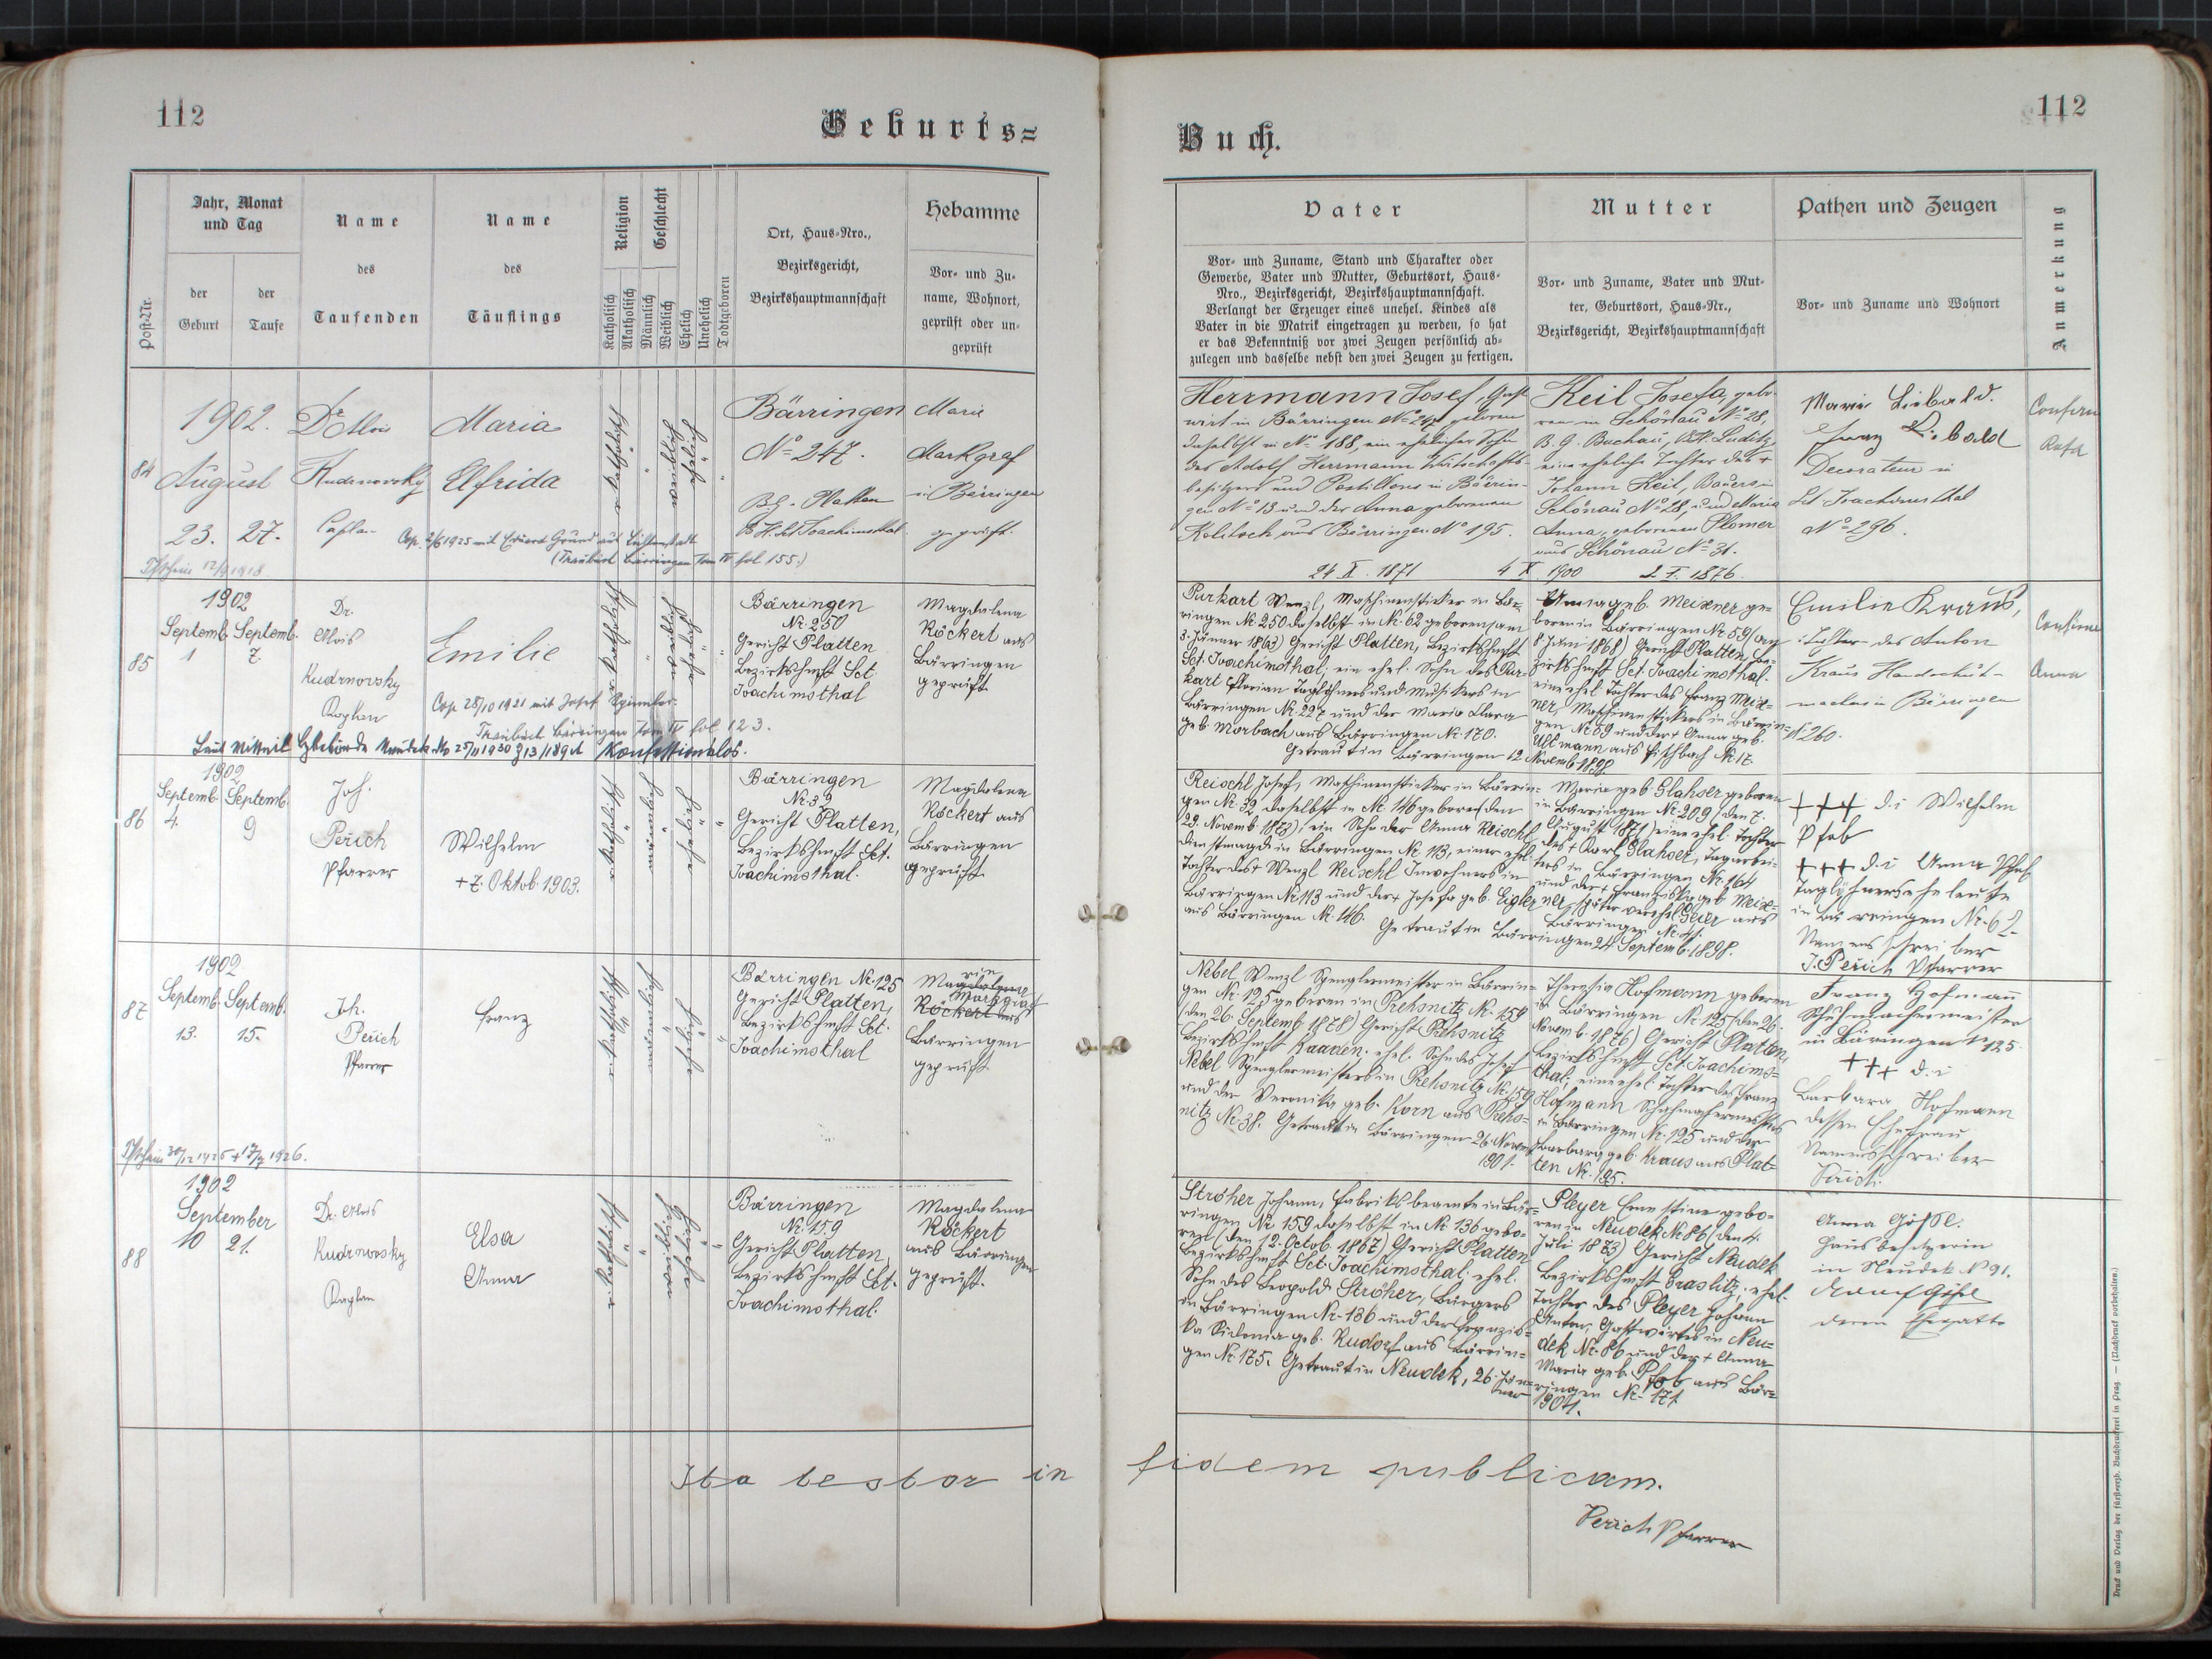 112
Geburts=
Post-Nr.
Jahr, Monat
und Tag
der
Geburt
der
Taufe
Name
des
Taufenden
Name
des
Täuflings
Religion
Katholisch
Akatholisch
Geschlecht
Männlich
Weiblich
Ehelich
Unehelich
Todtgeboren
Ort, Haus-Nro.,
Bezirksgericht,
Bezirkshauptmannschaft
Hebamme
Vor- und Zu-
name, Wohnort,
geprüft oder un-
geprüft
84
1902.
August
23. 27.
Dr. Alois
Kudrnovsky
Caplan
Maria
Elfrida
Cop. 2/6 1925 mit Eduard Grund aus Lichtenstadt
(Traubuch Bärringen Tom IV fol 155.)
12/9 1918
Bärringen
No 247.
B.G. Platten
B.H. St. Joachimsthal.
Marie
Markgraf
in Bärringen
geprüft.
85
1902
Septemb. Septemb.
1 7.
Dr.
Alois
Kudrnovsky
Kaplan
Emilie
Cop 28/10 1921 mit Josef
Traubuch Bärringen Tom IV fol 123.
Konfessionslos.
Bärringen
Nr. 250
Gericht Platten
Bezirkshmsft Sct.
Joachimsthal
Magdalena
Röckert aus
Bärringen
geprüft
86
1902
Septemb. Septemb.
4. 9
Joh.
Perich
Pfarrer
Wilhelm
+ 7. Oktob. 1903.
Bärringen
Nr. 32
Gericht Platten,
Bezirkshmsft Sct.
Joachimsthal.
Magdalena
Röckert aus
Bärringen
geprüft
87
1902
Septemb. Septemb.
13. 15.
Joh.
Perich
Pfarrer
Franz
1926.
Bärringen Nr. 125
Gericht Platten,
Bezirkshmsft Sct.
Joachimsthal
Magdalena rie
Markgraf
Röckert aus
Bärringen
geprüft
88
1902
September
10 21.
Dr. Alois
Kudrnovsky
Kaplan
Elsa
Anna
Bärringen
Nr. 159
Gericht Platten,
Bezirkshmsft Sct.
Joachimsthal.
Magdalena
Röckert
aus Bärringen
geprüft.
Ita testor in
112
Buch.
Vater
Vor- und Zuname, Stand und Charakter oder
Gewerbe, Vater und Mutter, Geburtsort, Haus-
Nro., Bezirksgericht, Bezirkshauptmannschaft.
Verlangt der Erzeuger eines unehel. Kindes als
Vater in die Matrik eingetragen zu werden, so hat
er das Bekenntniß vor zwei Zeugen persönlich ab-
zulegen und dasselbe nebst den zwei Zeugen zu fertigen.
Mutter
Vor- und Zuname, Vater und Mut-
ter, Geburtsort, Haus-Nr.,
Bezirksgericht, Bezirkshauptmannschaft
Pathen und Zeugen
Vor- und Zuname und Wohnort
Anmerkung
Herrmann Josef, Gast-
wirt in Bärringen No 247, geboren
daselbst in No 188, ein ehelicher Sohn
des Adolf Herrmann Wirtschafts-
besitzers und Postillons in Bärrin-
gen No 13 und der Anna geborenen
Kolitsch aus Bärringen No 195.
24 X. 1871
Keil Josefa, gebo-
ren in Schönau No 28,
B.G. Buchau, B.H. Luditz
eine eheliche Tochter des +
Johann Keil, Bauers in
Schönau No 28, und Maria
Anna, geborenen Plomer
aus Schönau No 31.
4 X. 1900 2. I. 1876.
Marie Liebald.
Franz Liebald
Decorateur in
St. Joachimsthal
No 296.
Purkart Wenzl, Maschinensticker in Bä=
ringen Nr. 250 daselbst in Nr. 62 geboren (am
3. Jänner 1863) Gericht Platten, Bezirkshmsft
Sct. Joachimsthal; ein ehel. Sohn des Pur-
kart Florian Taglöhners und Musikers in
Bärringen Nr. 227 und der Maria Clara
geb. Morbach aus Bärringen Nr. 170.
Getraut in Bärringen 12 Novemb 1898
Anna geb. Meixner ge-
boren in Bärringen Nr. 59 (am
8 Juni 1868) Gericht Platten, Be-
zirkshmsft Sct. Joachimsthal.
eine ehel. Tochter des Franz Meix=
ner, Maschinenstickers in Bärrin=
gen Nr. 59 und der + Anna geb.
Ullmann aus Fischbach Nr. 17.
Emilie Kraus,
Tochter des Anton
Kraus Handschuh-
machers in Bärringen
N. 260.
Anna
Reischl Josef, Maschinensticker in Bärrin-
gen Nr. 32 daselbst in Nr. 146 geboren (den
29. Novemb. 1873) ein Sohn der Anna Reischl
Dienstmagd in Bärringen Nr. 113, einer ehel.
Tochter des + Wenzl Reischl Inwohners in
Bärringen Nr. 113 und der + Josefa geb. Eigler
aus Bärringen Nr. 146. Getraut in Bärringen 24 Septemb. 1898.
Maria geb. Glahser geboren
in Bärringen Nr. 209 (den 7.
August 1871) eine ehel. Tochter
des + Karl Glahser, Tagarbei-
ters in Bärringen Nr. 164
und der + Franziska geb. Meix=
ner, später verehel. Geier aus
Bärringen
+++ d.i Wilhelm
Pfob
+++ d.i Anna Pfob
Taglöhnerseheleute
in Bärringen Nr. 62
Namensschreiber
J. Perich Pfarrer
Nebel Wenzl Spenglermeister in Bärrin=
gen Nr. 125 geboren in Prehsnitz Nr. 159
(den 26. Septemb. 1878) Gericht Prehsnitz
Bezirkshmsft Kaaden. ehel. Sohn des Josef
Nebel Spenglermeisters in Prehsnitz Nr. 159
und der Veronika geb. Korn aus Prehs=
nitz Nr. 38. Getraut in Bärringen 26. Novemb
1901.
Theresia Hofmann geboren
in Bärringen Nr. 125 (den 26.
Novemb. 1876) Gericht Platten,
Bezirkshmsft Sct. Joachims=
thal; eine ehel. Tochter des Franz
Hofmann Schuhmachermeisters
in Bärringen Nr. 125 und der
Barbara geb. Kraus aus Plat=
ten Nr. 195.
Franz Hofmann
Schuhmachermeister
in Bäringen No 125.
+++ d.i
Barbara Hofmann
dessen Ehefrau
Namensschreiber
Perich.
Ströher Johann, Fabriksbeamte in Bär=
ringen Nr. 159 daselbst in Nr. 136 gebo-
ren (den 12. Octob. 1867) Gericht Platten
Bezirkshmsft Sct. Joachimsthal. ehel.
Sohn des Leopold Ströher, Bürgers
in Bärringen Nr. 136 und der Franzis=
ka Sidonia geb. Rudorf aus Bärrin=
gen Nr. 175. Getraut in Neudek, 26. Jän=
ner
Pleyer Ernestine gebo-
ren in Neudek Nr. 86 (den 4.
Juli 1873) Gericht Neudek
Bezirkshmsft Graslitz; ehel.
Tochter des Pleyer Johann
Anton, Gastwirtes in Neu=
dek Nr. 86 und der + Anna
Maria geb. Pfob aus Bär=
ringen Nr. 171.
Anna Gößl.
Hausbesitzerin
in Neudek N 91.
deren Ehegatte
fidem publicam.
Perich Pfarrer
Druck und Verlag der fürsterzb. Buchdruckerei in Prag. — (Nachdruck vorbehalten.)